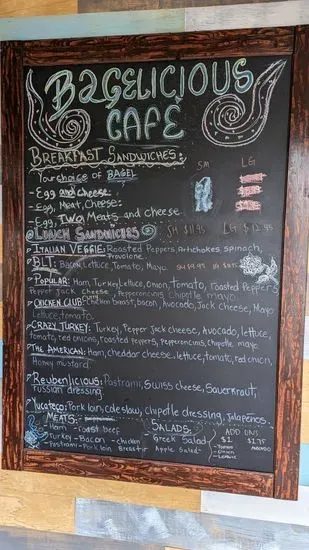 BAGELICIOUS
CAFÉ
BREAKFAST SANDWICHES:
Your choice of BAGEL
SM LG
-Egg and Cheese
-Egg, Meat, Cheese
-Egg, TWO Meats and cheese
LUNCH SANDWICHES SM $11.95 LG $12.95
ITALIAN VEGGIE: Roasted Peppers, Artichokes, Spinach,
Provolone
BLT: Bacon, Lettuce, Tomato, Mayo. SM $9.95 LG
POPULAR: Ham, Turkey, Lettuce, Onion, Tomato, Roasted Peppers
Pepper jack cheese, Pepperoncini, Chipotle mayo
CHICKEN CLUB: Chicken breast, bacon, Avocado, Jack cheese, Mayo
Lettuce, tomato.
CRAZY TURKEY: Turkey, Pepper Jack cheese, Avocado, lettuce,
tomato, red onions, roasted peppers, pepperoncinis, chipotle mayo
THE AMERICAN: Ham, cheddar cheese, lettuce, tomato, red onion,
Honey mustard
Reubenlicious: Pastrami, Swiss cheese, Sauerkraut,
russian dressing
Yucateco: Pork loin, coleslaw, chipotle dressing, jalapeños.
MEATS:
-Ham -roast beef
-Turkey -Bacon -chicken
-Pastrami -Pork loin Breast
SALADS:
Greek Salad
Apple Salad
ADD ON!
$1 $1.75
-Tomato AVOCADO
-Onion
-Lettuce